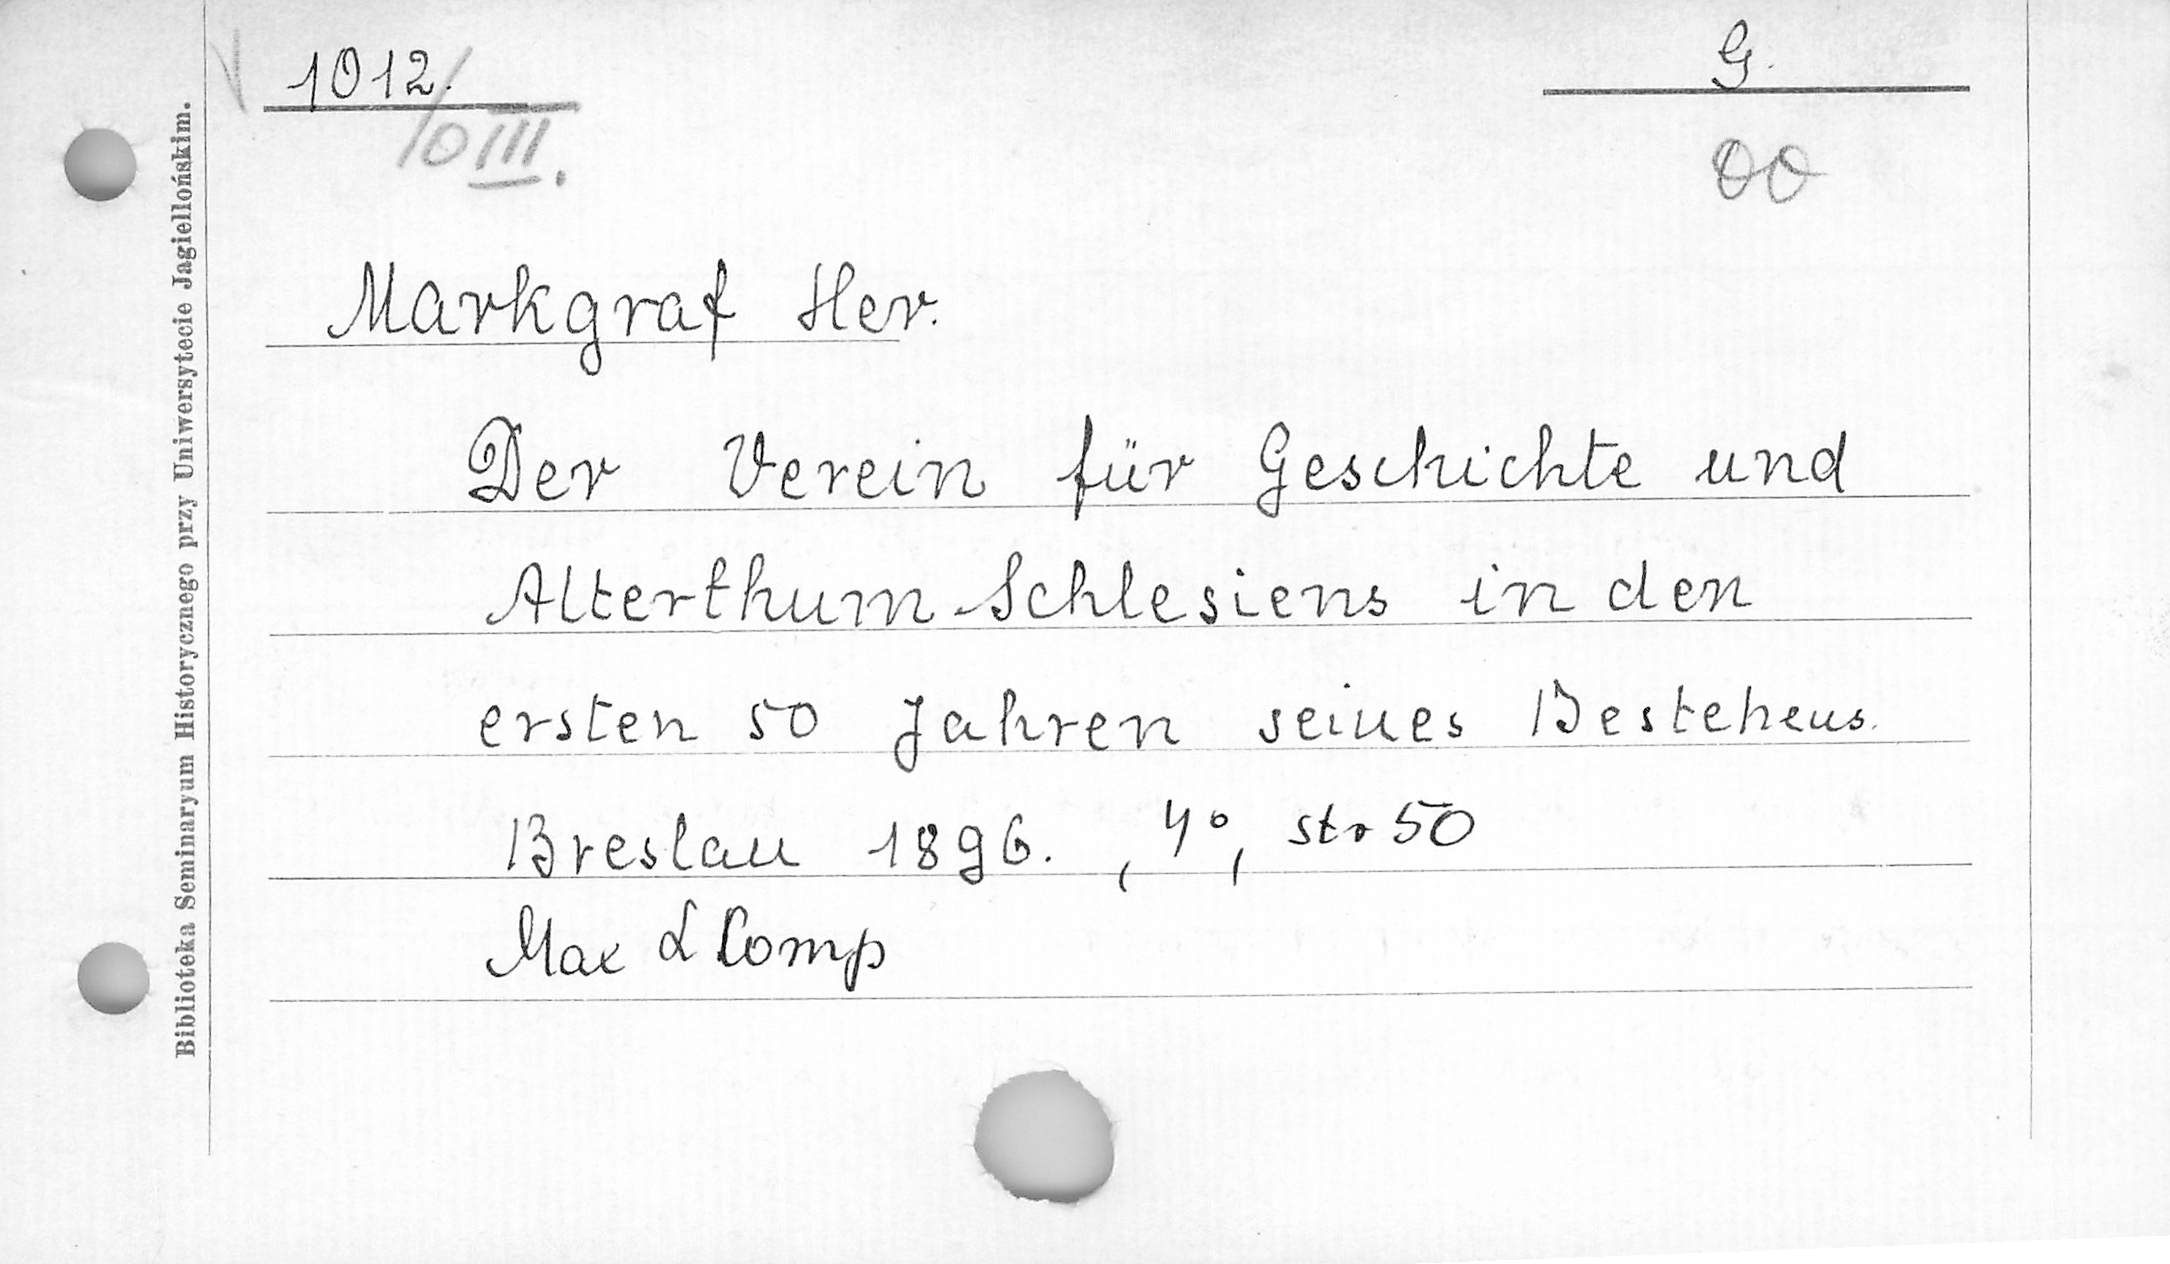 1012.
G.
10 III.
00
Markgraf Her.
Der Verein für Geschichte und
Alterthum Schlesiens in den
ersten 50 Jahren seines Bestehens.
Breslau 1896. , 4°, str 50
Max & Comp
Biblioteka Seminaryum Historycznego przy Uniwersytecie Jagiellońskim.